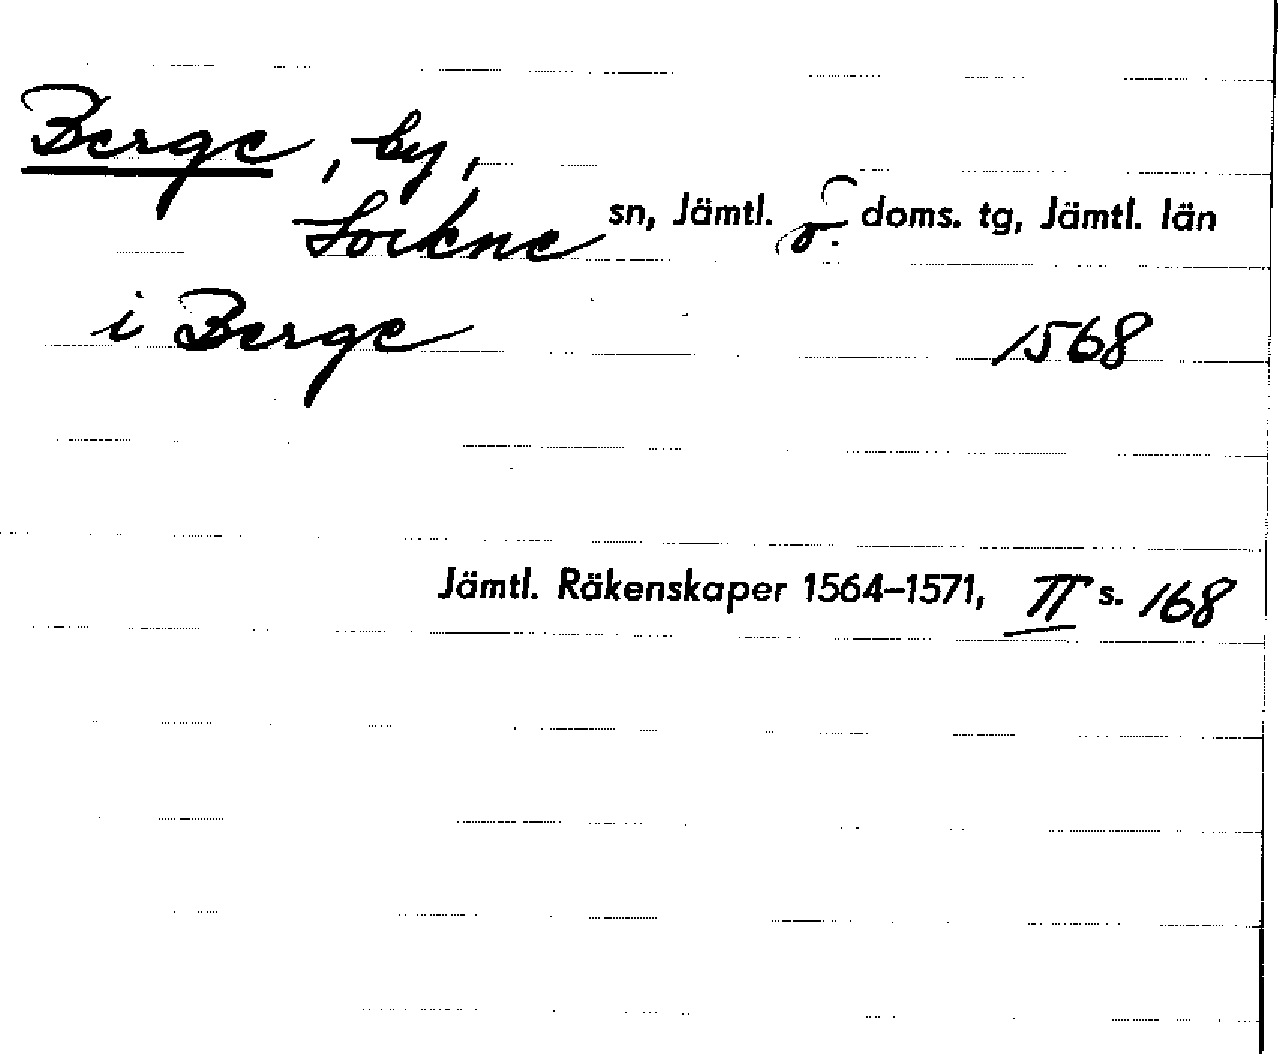 Berge, by,
Lockne sn, Jämtl. v. doms. tg, Jämtl. län
i Berge 1568
Jämtl. Räkenskaper 1564–1571, II s. 168